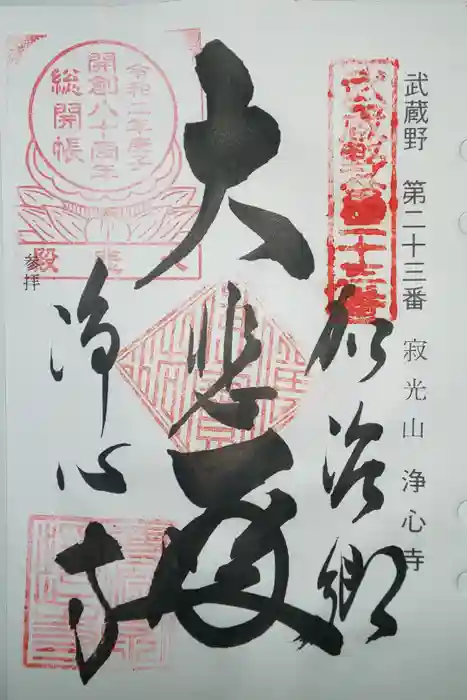 武蔵野 第二十三番 寂光山 浄心寺
加治郷
大悲殿
浄心寺
参拝
令和二年庚子
開創八十周年
総開帳
大悲殿